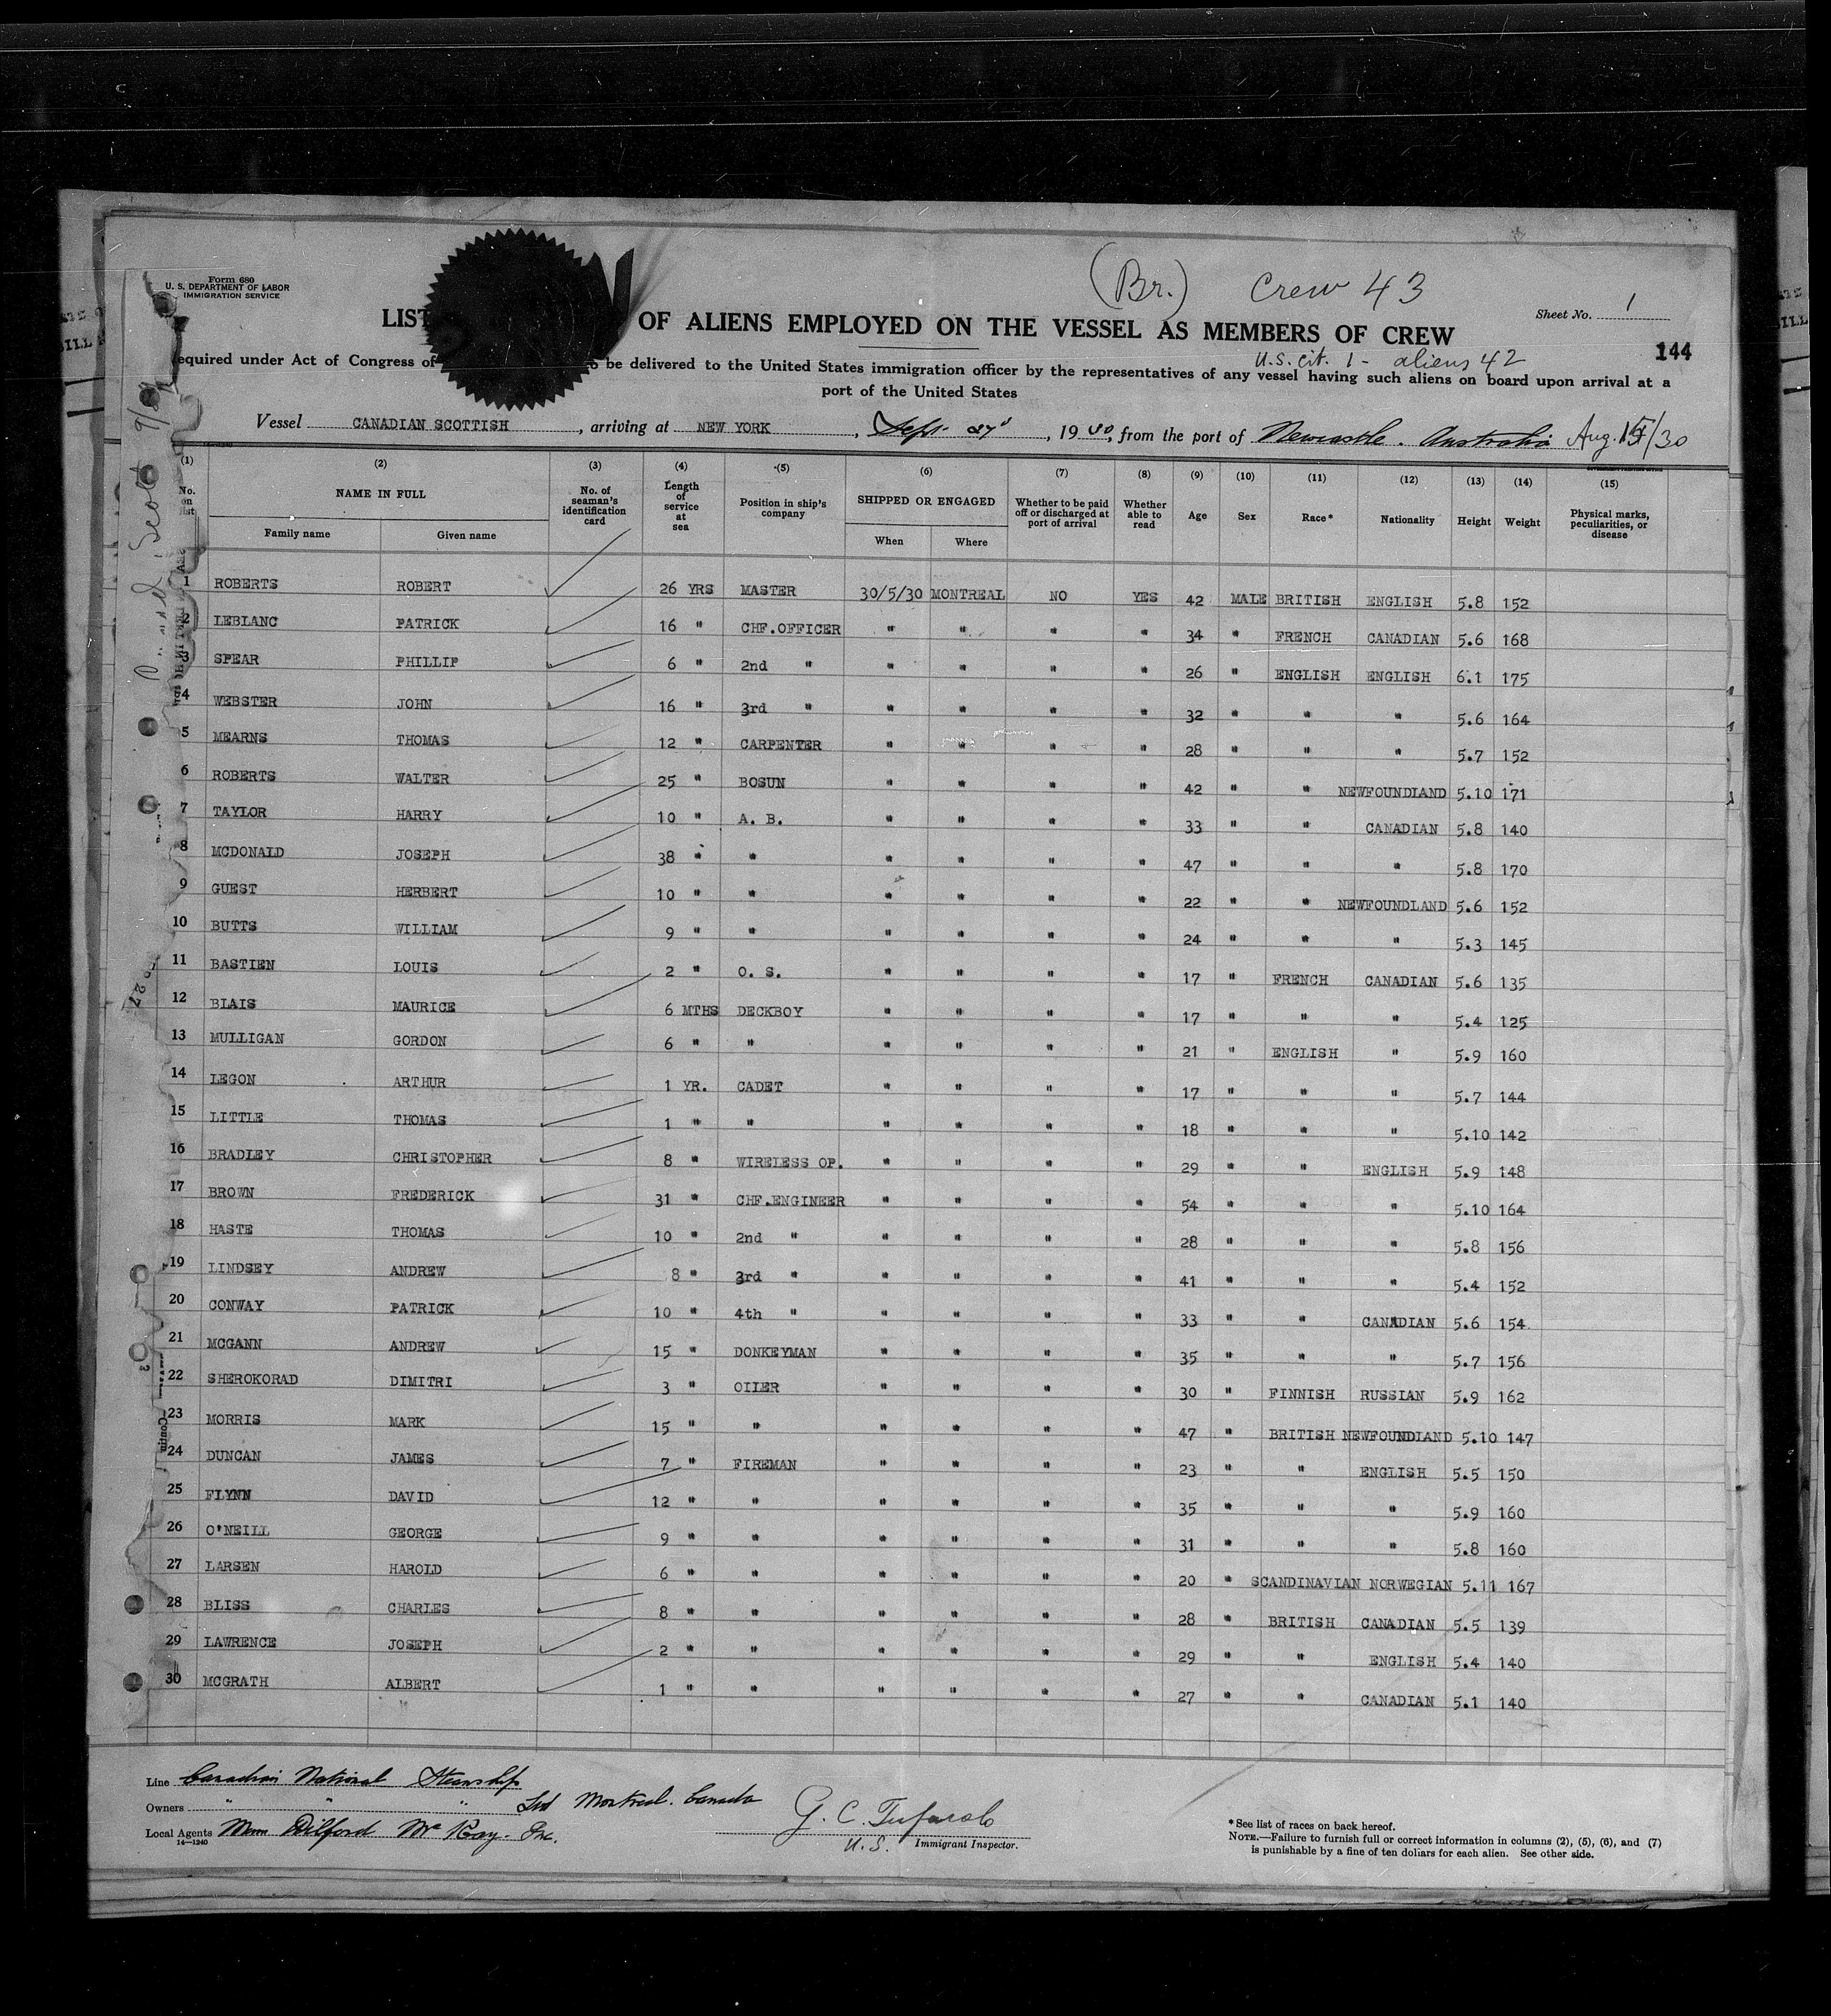 Form 680
U. S. DEPARTMENT OF LABOR
IMMIGRATION SERVICE
(Br.) Crew 43
Sheet No. 1
LIST OF ALIENS EMPLOYED ON THE VESSEL AS MEMBERS OF CREW
144
U.S. cit. 1 - aliens 42
equired under Act of Congress of be delivered to the United States immigration officer by the representatives of any vessel having such aliens on board upon arrival at a
port of the United States
Vessel CANADIAN SCOTTISH, arriving at NEW YORK, Sept. 27, 1930, from the port of Newcastle. Australia Aug. 15/30
(1) (2) (3) (4) (5) (6) (7) (8) (9) (10) (11) (12) (13) (14) (15)
No. on list NAME IN FULL Family name Given name No. of seaman's identification card Length of service at sea Position in ship's company SHIPPED OR ENGAGED When Where Whether to be paid off or discharged at port of arrival Whether able to read Age Sex Race* Nationality Height Weight Physical marks, peculiarities, or disease
1 ROBERTS ROBERT 26 YRS MASTER 30/5/30 MONTREAL NO YES 42 MALE BRITISH ENGLISH 5.8 152
2 LEBLANC PATRICK 16 " CHF.OFFICER " " " " 34 " FRENCH CANADIAN 5.6 168
3 SPEAR PHILLIP 6 " 2nd " " " " " 26 " ENGLISH ENGLISH 6.1 175
4 WEBSTER JOHN 16 " 3rd " " " " " 32 " " " 5.6 164
5 MEARNS THOMAS 12 " CARPENTER " " " " 28 " " " 5.7 152
6 ROBERTS WALTER 25 " BOSUN " " " " 42 " " NEWFOUNDLAND 5.10 171
7 TAYLOR HARRY 10 " A. B. " " " " 33 " " CANADIAN 5.8 140
8 MCDONALD JOSEPH 38 " " " " " " 47 " " " 5.8 170
9 GUEST HERBERT 10 " " " " " " 22 " " NEWFOUNDLAND 5.6 152
10 BUTTS WILLIAM 9 " " " " " " 24 " " " 5.3 145
11 BASTIEN LOUIS 2 " O. S. " " " " 17 " FRENCH CANADIAN 5.6 135
12 BLAIS MAURICE 6 MTHS DECKBOY " " " " 17 " " " 5.4 125
13 MULLIGAN GORDON 6 " " " " " " 21 " ENGLISH " 5.9 160
14 LEGON ARTHUR 1 YR. CADET " " " " 17 " " " 5.7 144
15 LITTLE THOMAS 1 " " " " " " 18 " " " 5.10 142
16 BRADLEY CHRISTOPHER 8 " WIRELESS OP. " " " " 29 " " ENGLISH 5.9 148
17 BROWN FREDERICK 31 " CHF.ENGINEER " " " " 54 " " " 5.10 164
18 HASTE THOMAS 10 " 2nd " " " " " 28 " " " 5.8 156
19 LINDSEY ANDREW 8 " 3rd " " " " " 41 " " " 5.4 152
20 CONWAY PATRICK 10 " 4th " " " " " 33 " " CANADIAN 5.6 154
21 MCGANN ANDREW 15 " DONKEYMAN " " " " 35 " " " 5.7 156
22 SHEROKORAD DIMITRI 3 " OILER " " " " 30 " FINNISH RUSSIAN 5.9 162
23 MORRIS MARK 15 " " " " " " 47 " BRITISH NEWFOUNDLAND 5.10 147
24 DUNCAN JAMES 7 " FIREMAN " " " " 23 " " ENGLISH 5.5 150
25 FLYNN DAVID 12 " " " " " " 35 " " " 5.9 160
26 O'NEILL GEORGE 9 " " " " " " 31 " " " 5.8 160
27 LARSEN HAROLD 6 " " " " " " 20 " SCANDINAVIAN NORWEGIAN 5.11 167
28 BLISS CHARLES 8 " " " " " " 28 " BRITISH CANADIAN 5.5 139
29 LAWRENCE JOSEPH 2 " " " " " " 29 " " ENGLISH 5.4 140
30 MCGRATH ALBERT 1 " " " " " " 27 " " CANADIAN 5.1 140
Line Canadian National Steamships
Owners " " " Ltd Montreal. Canada
Local Agents Dilford McKay. Inc.
14—1240
G. C. Tufarolo
U.S. Immigrant Inspector.
* See list of races on back hereof.
NOTE.—Failure to furnish full or correct information in columns (2), (5), (6), and (7)
is punishable by a fine of ten dollars for each alien. See other side.